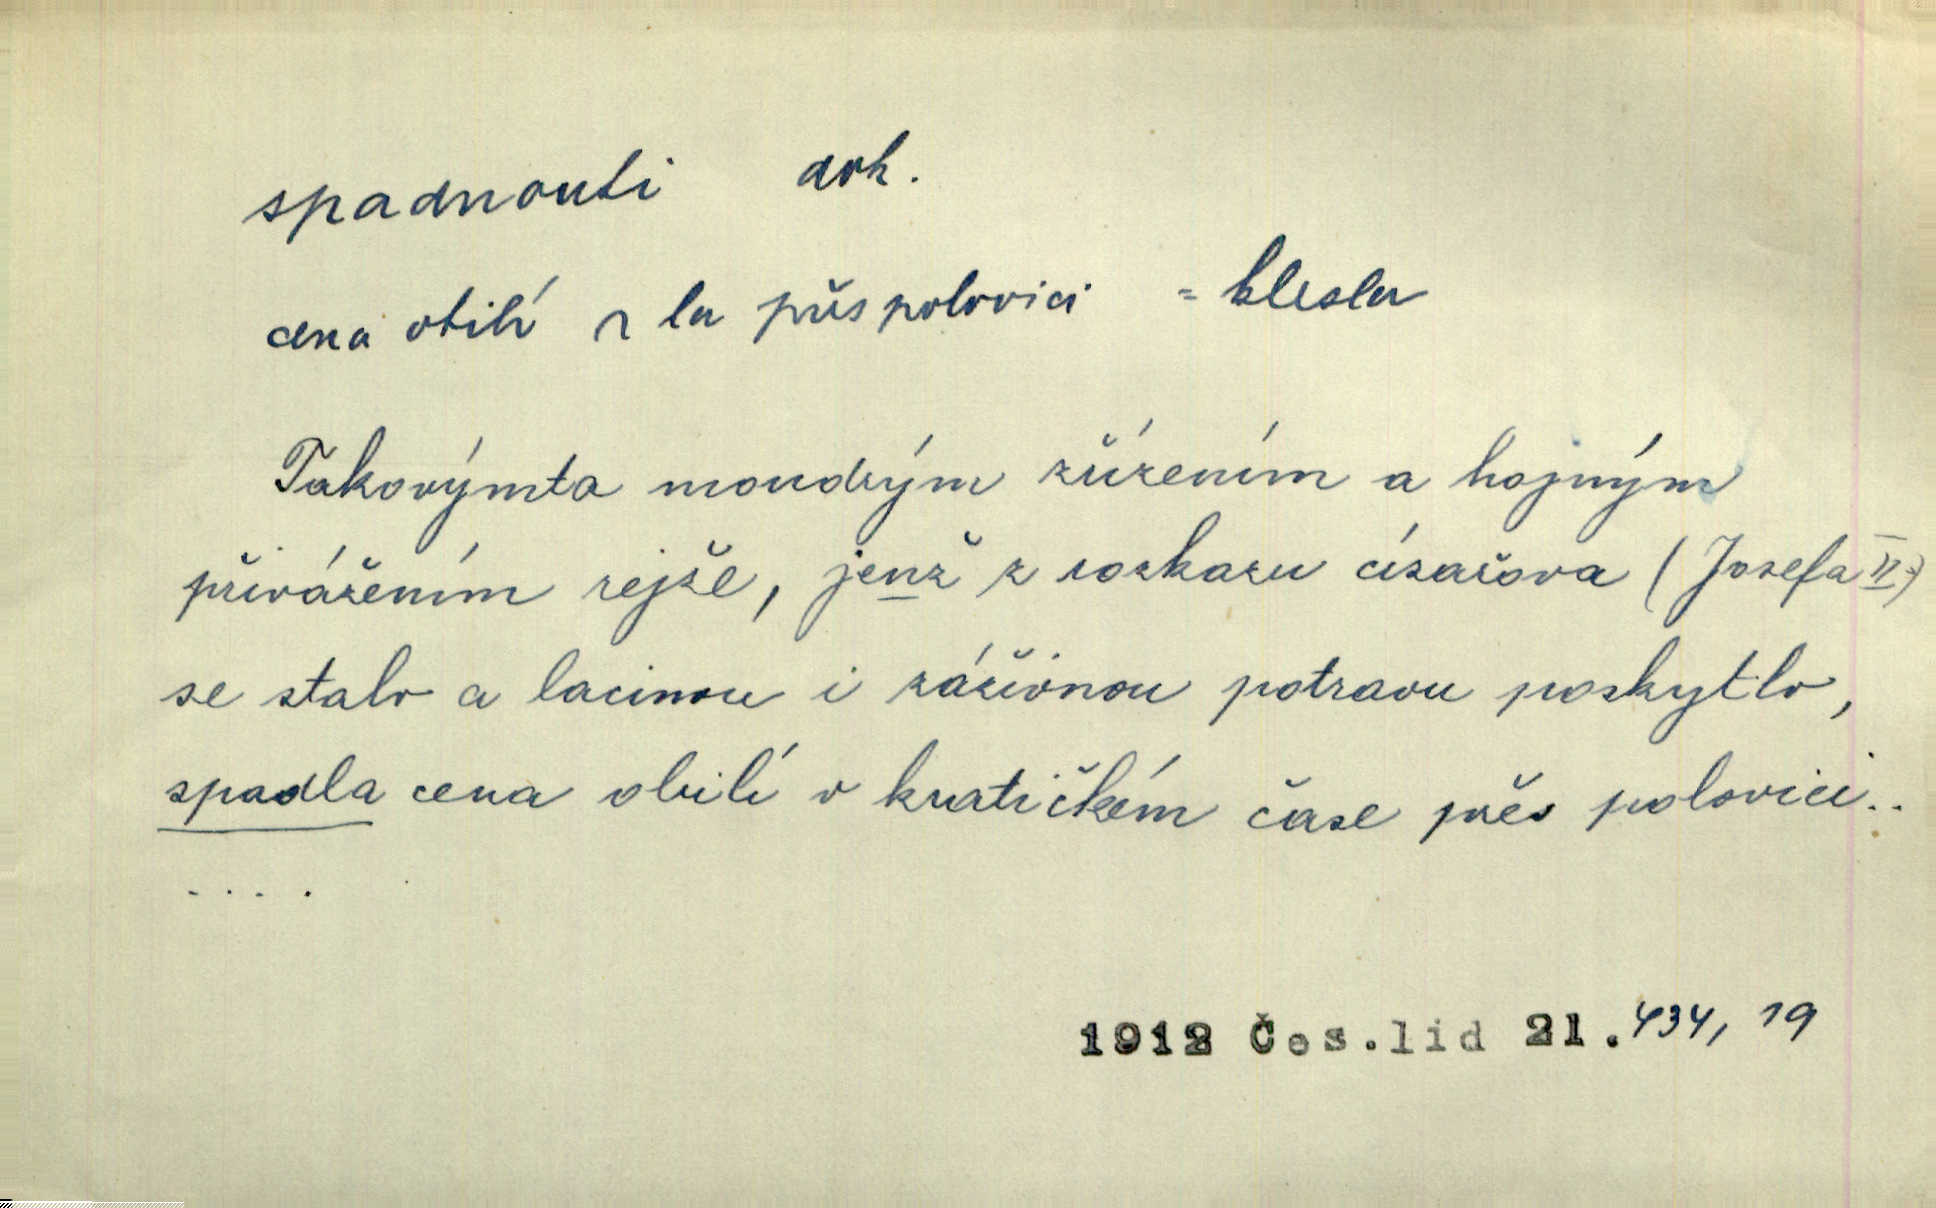 spadnouti dok.
cena obilí s la přes polovici = klesla
Takovýmto moudrým zřízením a hojným
přivážením rejže, jenž z rozkazu císařova (Josefa II.)
se stalo a lacinou i záživnou potravu poskytlo,
spadla cena obilí v kratičkém čase přes polovici..
....
1912 Čes.lid 21.434, 19